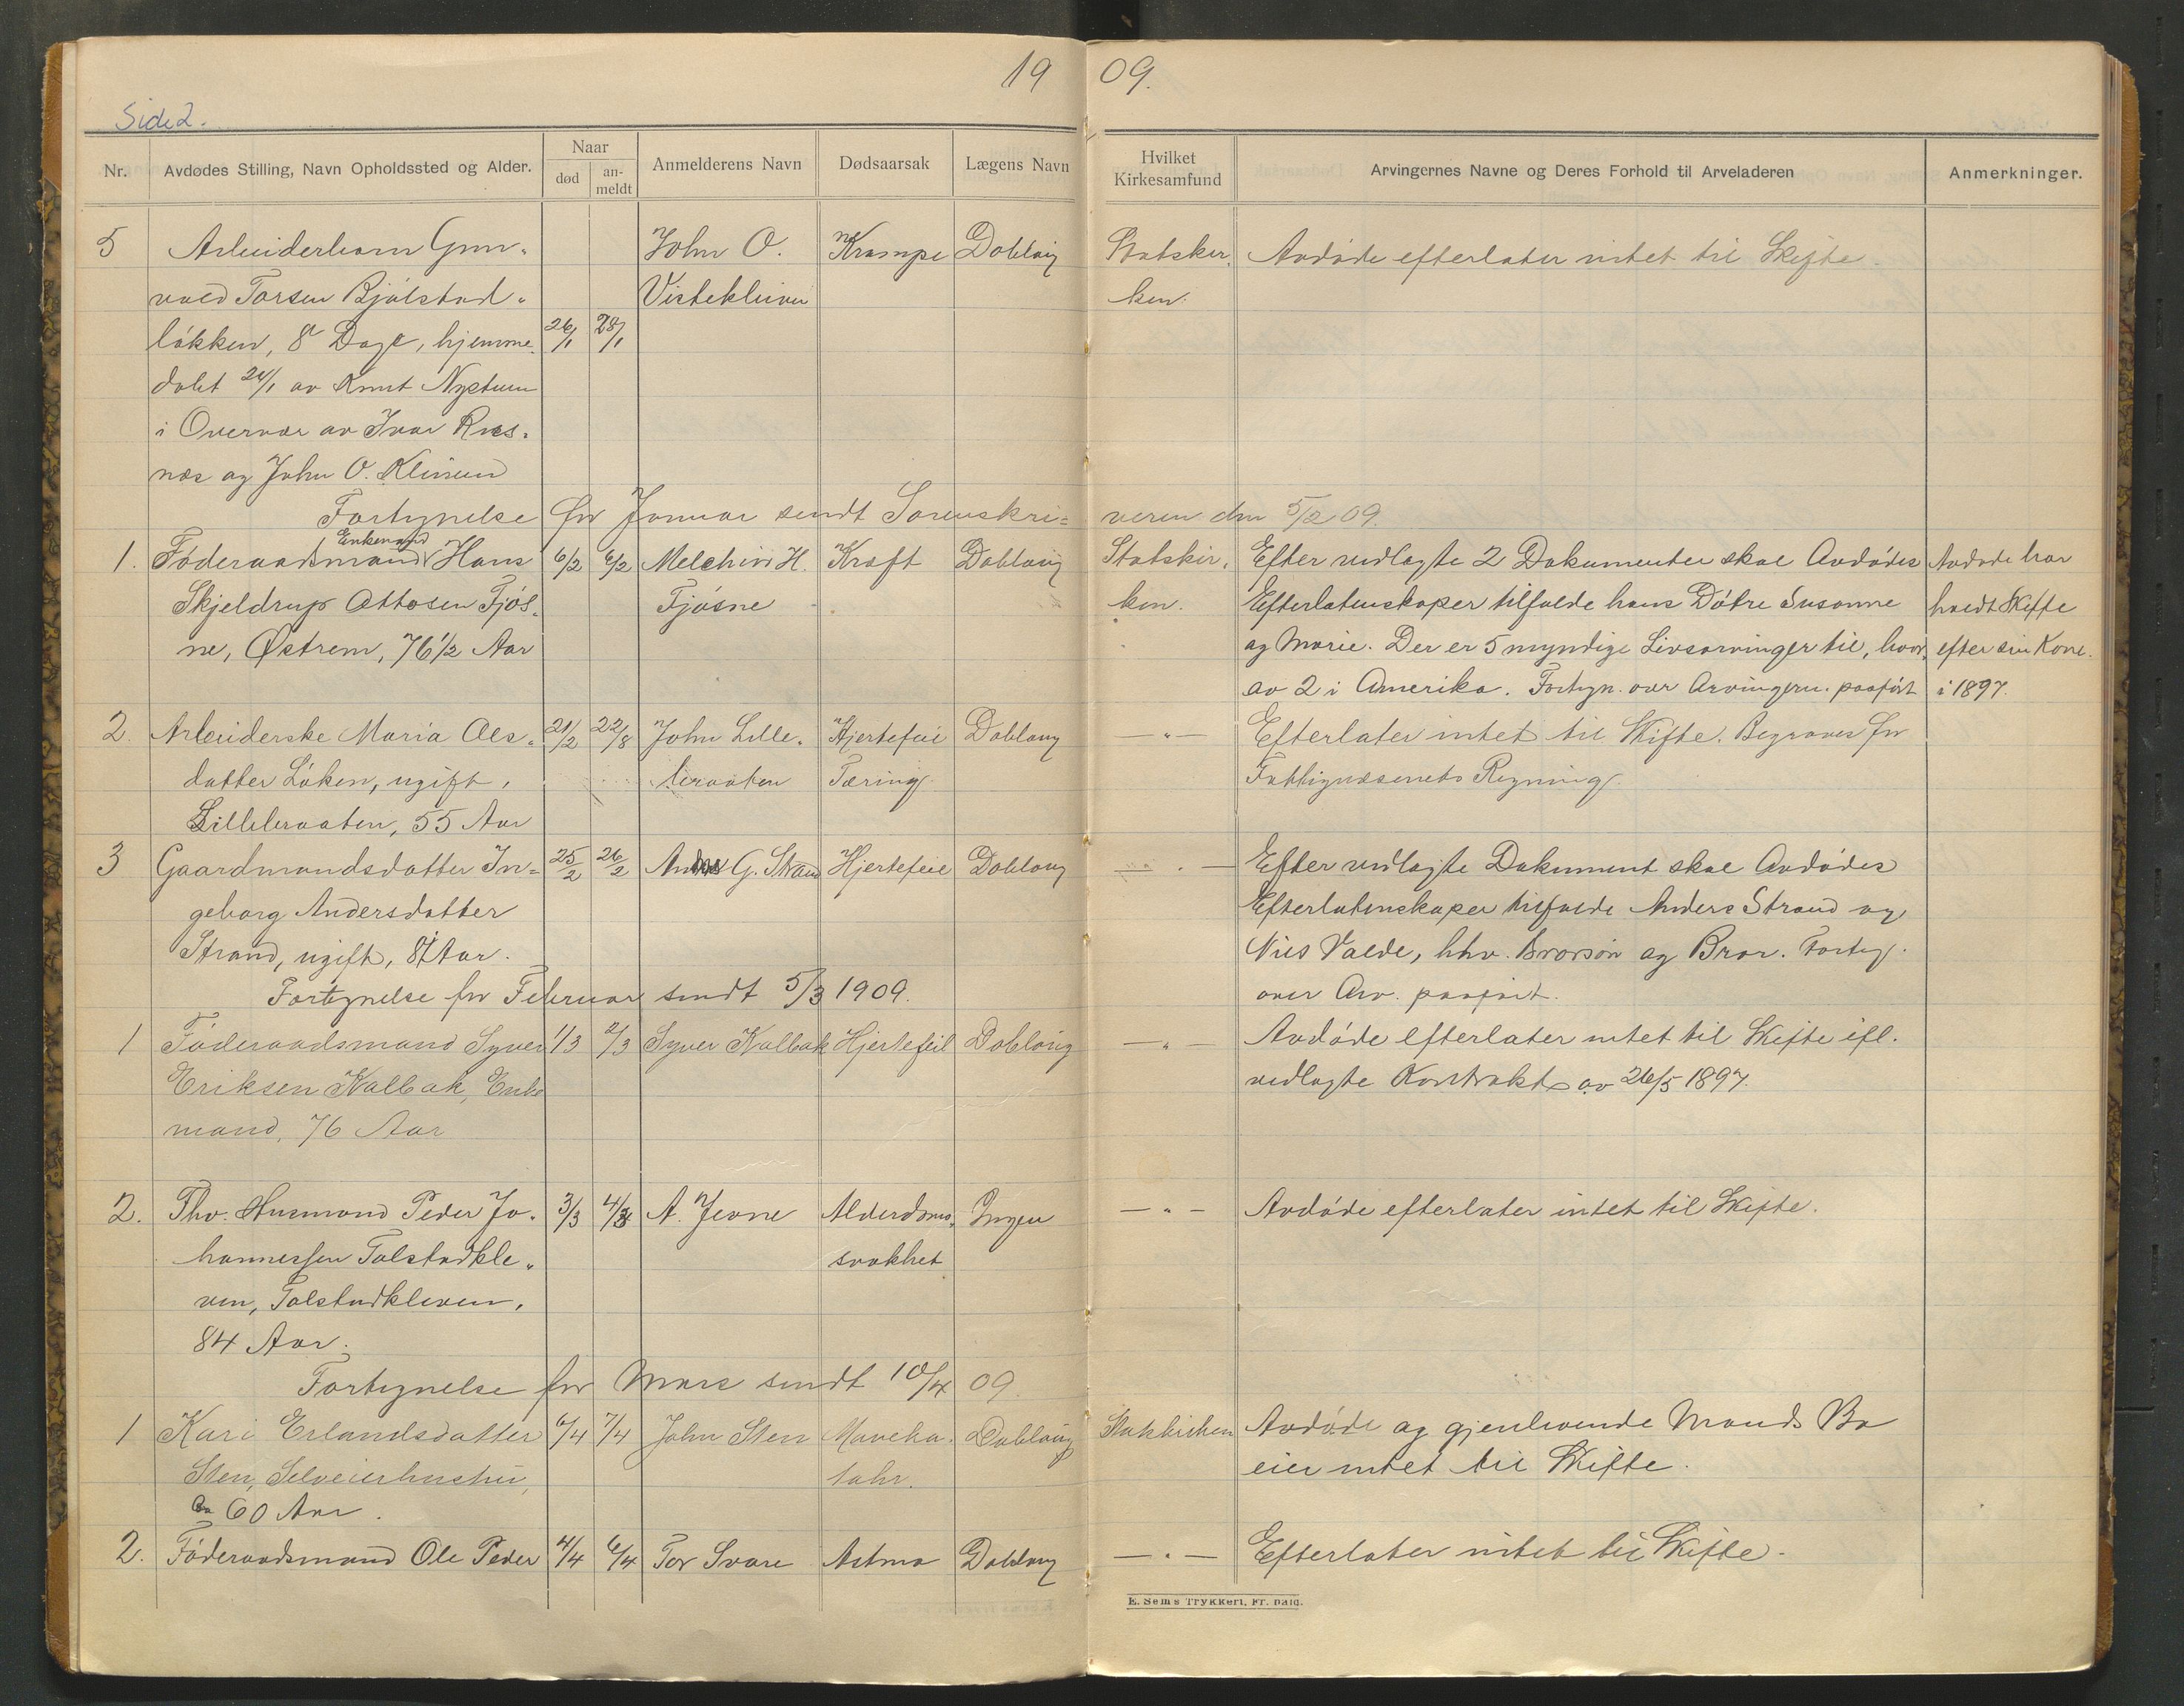 19 09.
Side 2.
Nr. Avdødes Stilling, Navn Opholdssted og Alder. Naar død an-meldt Anmelderens Navn Dødsaarsak Lægens Navn Hvilket Kirkesamfund Arvingernes Navne og Deres Forhold til Arveladeren Anmerkninger.
5 Arbeiderbarn Gun- John O. Krampe Dobloug Statskir- Avdøde efterlater intet til Skifte.
vald Torsen Bjølstad- Vistekleiven ken.
løkken, 8 Dage, hjemme- 26/1 28/1
døbt 24/1 av Knut Nystuen
i Overvær av Ivar Rus-
nes og John O. Kleiven
Fortegnelse for Januar sendt Sorenskri- veren den 5/2 09.
Enkemand
1. Føderaadsmand Hans 6/2 6/2 Melchior H. Kræft Dobloug Statskir- Efter vedlagte 2 Dokumenter skal Avdødes Avdøde har
Skjeldrup Ottosen Fjøs- Fjøsne ken. Efterlatenskaper tilfalde hans Døtre Susanne havdt Skifte
ne, Østrem, 76 1/2 Aar og Marie. Der er 5 myndige Livsarvinger til, hvor- efter sin Kone
av 2 i Amerika. Fortegn. over Arvingern. paaført i 1897.
2. Arbeiderske Maria Ols- 21/2 22/8 John Lille- Hjertefeil Dobloug —"— Efterlater intet til Skifte. Begraves for
datter Løken, ugift, braaten Tæring Fattigvæsenets Regning.
Lillebraaten, 55 Aar
3 Gaardmandsdatter In- 25/2 26/2 Anders G. Strand Hjertefeil Dobloug —"— Efter vedlagte Dokument skal Avdødes
geborg Andersdatter Efterlatenskaper tilfalde Anders Strand og
Strand, ugift, Aar. Nils Valde, hhv. Brorsøn og Bror. Forteg.
Fortegnelse for Februar sendt 5/3 1909. over Arv. paaført.
1 Føderaadsmand Syver 1/3 2/3 Syver Kalbak Hjertefeil Dobloug —"— Avdøde efterlater intet til Skifte ifl.
Eriksen Kalbak, Enke vedlagte Kontrakt av 26/5 1897.
mand, 76 Aar
2. Fhv. Husmand Peder Jo- 3/3 4/3 A. Jevne Alderdoms- Ingen —"— Avdøde efterlater intet til Skifte.
hannessen Tolstadkle- svakhet
ven, Tolstadkleven,
84 Aar.
Fortegnelse for Mars sendt 10/4 09.
1 Kari Erlandsdatter 6/4 7/4 John Sten Maveka- Dobloug Statskirken Avdøde og gjenlevende Mands Bo
Sten, Selveierhustru, tahr. eier intet til Skifte.
Ca 60 Aar.
2. Føderaadsmand Ole Peder 4/4 6/4 Tor Svare Astma Dobloug —"— Efterlater intet til Skifte.
E. Sem's Trykkeri, Fr. hald.